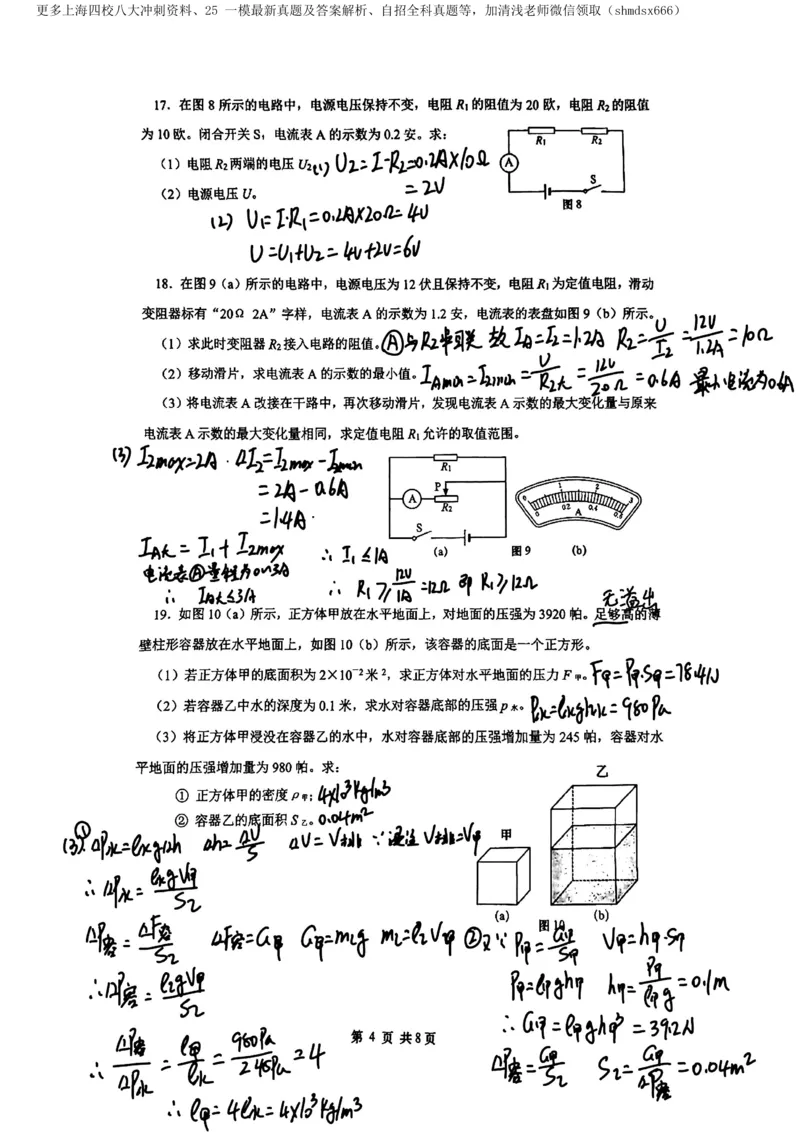 更多上海四校八大冲刺资料、25 一模最新真题及答案解析、自招全科真题等，加清浅老师微信领取（shmdsx666）
17．在图 8 所示的电路中，电源电压保持不变，电阻 R₁ 的阻值为 20 欧，电阻 R₂ 的阻值
为 10 欧。闭合开关 S，电流表 A 的示数为 0.2 安。求：
（1）电阻 R₂ 两端的电压 U₂。
(1) U₂=I·R₂=0.2A×10Ω
=2V
（2）电源电压 U。
(2) U₁=I·R₁=0.2A×20Ω=4V
U=U₁+U₂=4V+2V=6V
R₁ R₂
A
S
图 8
18．在图 9（a）所示的电路中，电源电压为 12 伏且保持不变，电阻 R₁ 为定值电阻，滑动
变阻器标有“20Ω 2A”字样，电流表 A 的示数为 1.2 安，电流表的表盘如图 9（b）所示。
（1）求此时变阻器 R₂ 接入电路的阻值。
Ⓐ与R₂串联 故 I_A=I₂=1.2A R₂=U/I₂=12V/1.2A=10Ω
（2）移动滑片，求电流表 A 的示数的最小值。
I_Amin=I₂min=U/R₂大=12V/20Ω=0.6A 最小电流为0.6A
（3）将电流表 A 改接在干路中，再次移动滑片，发现电流表 A 示数的最大变化量与原来
电流表 A 示数的最大变化量相同，求定值电阻 R₁ 允许的取值范围。
(3) I₂max=2A. ΔI₂=I₂max-I₂min
=2A-0.6A
=1.4A.
I_A大=I₁+I₂max
电流表Ⓐ量程为0~3A
∴ I_A大≤3A
∴ I₁≤1A
∴ R₁≥12V/1A=12Ω 即 R₁≥12Ω
R₁
P
A
R₂
S
(a) 图 9 (b)
0 1 2 3
0 0.2 0.4 0.6
A
无溢出
19．如图 10（a）所示，正方体甲放在水平地面上，对地面的压强为 3920 帕。足够高的薄
壁柱形容器放在水平地面上，如图 10（b）所示，该容器的底面是一个正方形。
（1）若正方体甲的底面积为 2×10⁻² 米²，求正方体对水平地面的压力 F甲。
F甲=P甲·S甲=78.4N
（2）若容器乙中水的深度为 0.1 米，求水对容器底部的压强 p水。
P水=ρ水gh水=980Pa
（3）将正方体甲浸没在容器乙的水中，水对容器底部的压强增加量为 245 帕，容器对水
平地面的压强增加量为 980 帕。求：
① 正方体甲的密度 ρ甲；
4×10³kg/m³
② 容器乙的底面积 S乙。
0.04m²
(3)① ΔP水=ρ水gΔh Δh=ΔV/S ΔV=V排 ∵浸没 V排=V甲
∴ΔP水=ρ水gV甲/S乙
ΔP容=ΔF容/S乙 ΔF容=G甲 G甲=m乙g m乙=ρ乙V甲
∴ΔP容=ρ乙gV甲/S乙
∴ΔP容/ΔP水=ρ甲/ρ水=980Pa/245Pa=4
∴ρ甲=4ρ水=4×10³kg/m³
甲
乙
(a) 图 10 (b)
②又∵P甲=G甲/S甲 V甲=h甲·S甲
P甲=ρ甲gh甲 h甲=P甲/ρ甲g=0.1m
∴G甲=ρ甲gh甲³=39.2N
ΔP容=G甲/S乙 S乙=G甲/ΔP容=0.04m²
第 4 页 共 8 页